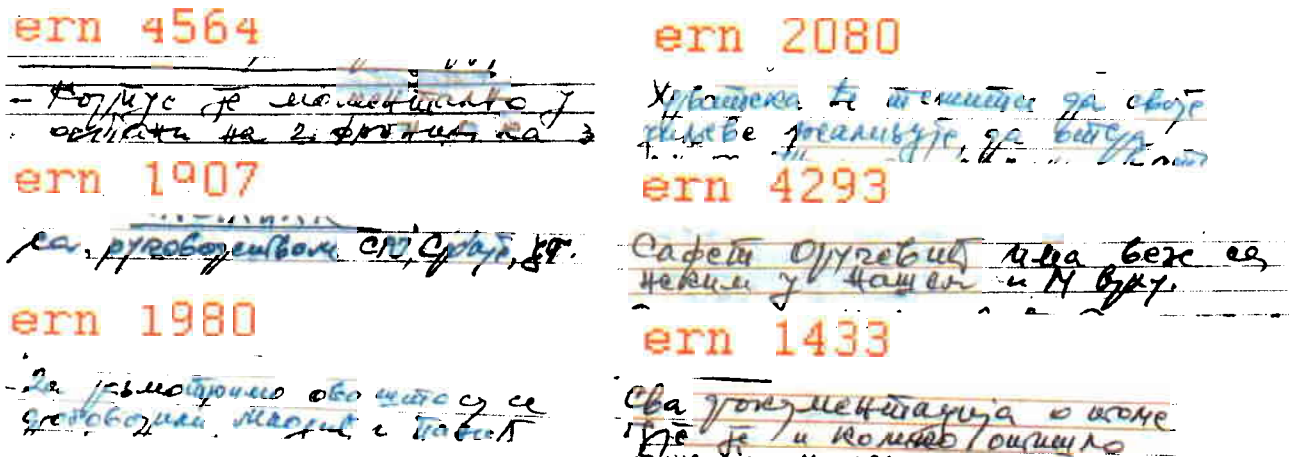 ern 4564
- Корпус је моментално у
на 2 фронта на 3
ern 1907
са руководством СРЈ, Србије,
ern 1980
- Да размотримо ово што су се
договорили Младић и
ern 2080
Хрватска ће тежити да своје
циљеве реализује, да
ern 4293
Сафет Оручевић има везе са
неким у нашем и М
ern 1433
Сва документација о томе
где је и колико отишло